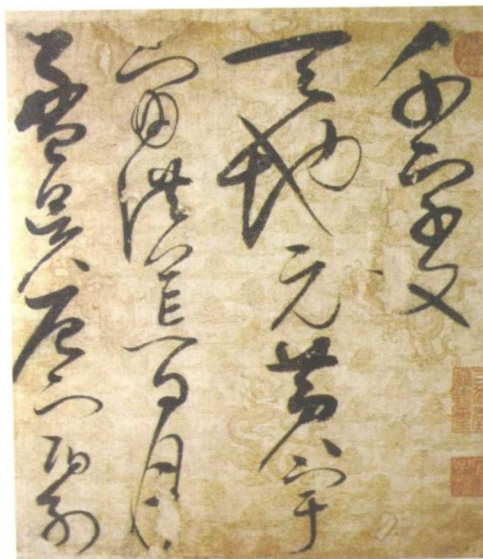 千字文
天地元黃宇
宙洪荒日月
盈昃辰宿列